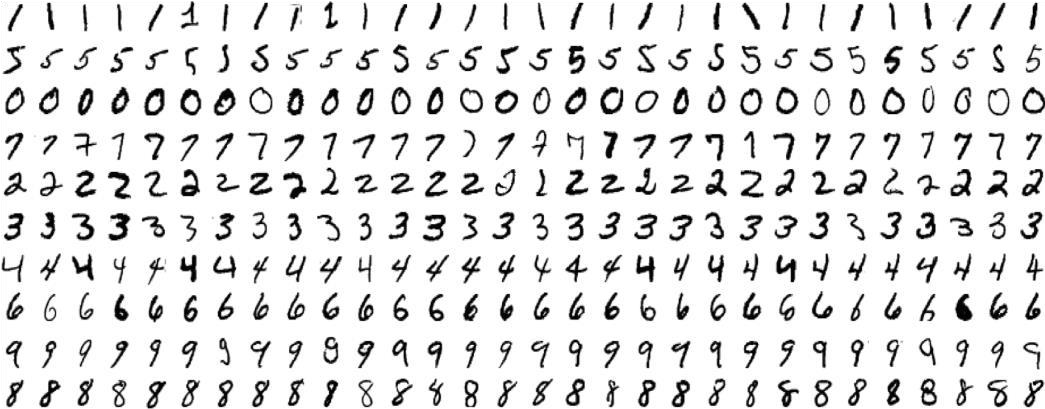 1 1 1 1 1 1 1 1 1 1 1 1 1 1 1 1 1 1 1 1 1 1 1 1 1 1 1 1 1 1
5 5 5 5 5 5 5 5 5 5 5 5 5 5 5 5 5 5 5 5 5 5 5 5 5 5 5 5 5 5
0 0 0 0 0 0 0 0 0 0 0 0 0 0 0 0 0 0 0 0 0 0 0 0 0 0 0 0 0 0
7 7 7 7 7 7 7 7 7 7 7 7 7 7 7 7 7 7 7 7 7 7 7 7 7 7 7 7 7 7
2 2 2 2 2 2 2 2 2 2 2 2 2 2 2 2 2 2 2 2 2 2 2 2 2 2 2 2 2 2
3 3 3 3 3 3 3 3 3 3 3 3 3 3 3 3 3 3 3 3 3 3 3 3 3 3 3 3 3 3
4 4 4 4 4 4 4 4 4 4 4 4 4 4 4 4 4 4 4 4 4 4 4 4 4 4 4 4 4 4
6 6 6 6 6 6 6 6 6 6 6 6 6 6 6 6 6 6 6 6 6 6 6 6 6 6 6 6 6 6
9 9 9 9 9 9 9 9 9 9 9 9 9 9 9 9 9 9 9 9 9 9 9 9 9 9 9 9 9 9
8 8 8 8 8 8 8 8 8 8 8 8 8 8 8 8 8 8 8 8 8 8 8 8 8 8 8 8 8 8